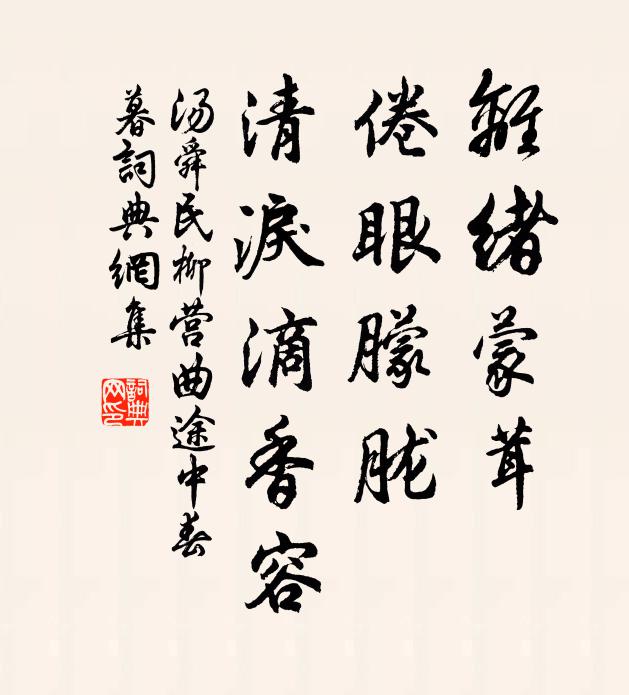 離緒蒙茸
倦眼朦朧
清淚滴香容
汤舜民柳营曲途中春
暮詞典網集
詞典
网印